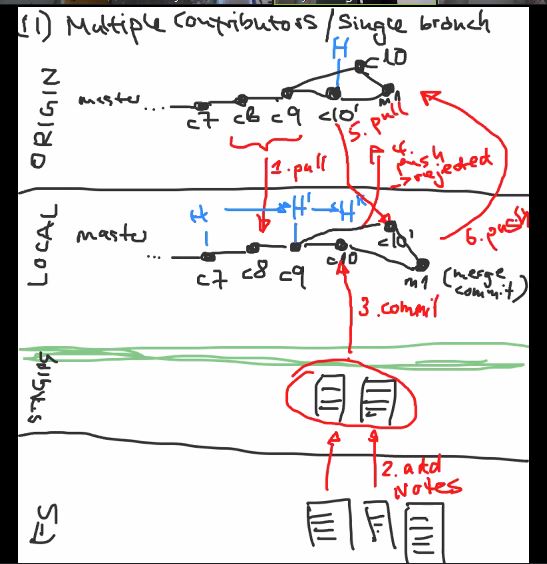 (1) Multiple Contributors / Single branch
ORIGIN
H
c10
master ...
c7 c8 c9 c10' m1
5. pull
4. push
-> rejected
1. pull
LOCAL
H H' H"
master ...
c7 c8 c9 c10 c10' m1
(merge
commit)
6. push
3. commit
STAGING
2. add
Notes
FS